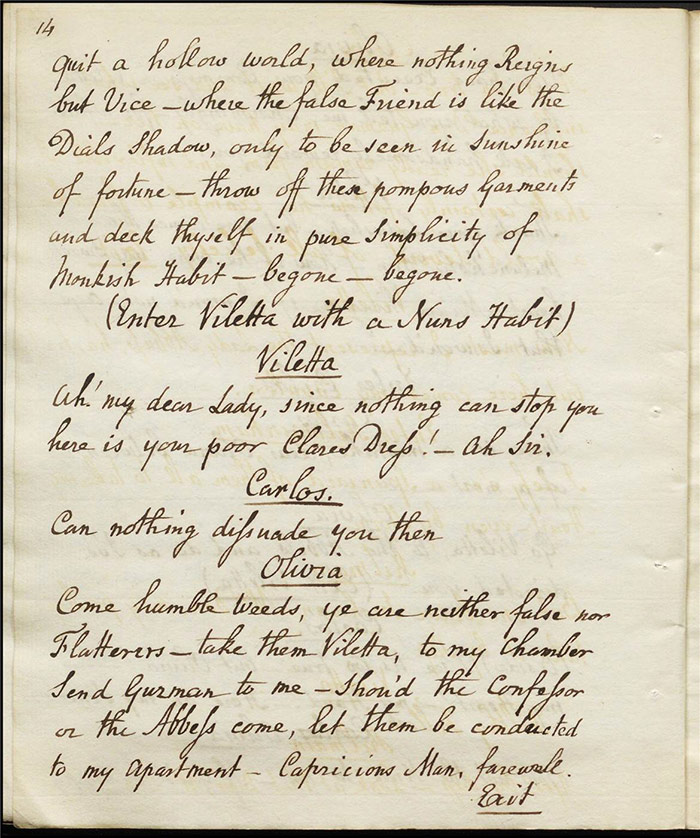 14
quit a hollow world, where nothing Reigns
but Vice – where the false Friend is like the
Dials Shadow, only to be seen in Sunshine
of fortune – throw off these pompous Garments
and deck thyself in pure Simplicity of
Monkish Habit – begone – begone.
(Enter Viletta with a Nuns Habit)
Viletta
Ah! my dear Lady, since nothing can stop you
here is your poor Clares Dreſs! – Ah Sir.
Carlos.
Can nothing diſsuade you then
Olivia
Come humble Weeds, ye are neither false nor
Flatterers – take them Viletta, to my Chamber
Send Guzman to me – Shou'd the Confeſsor
or the Abbeſs come, let them be conducted
to my Apartment – Capricious Man, farewell.
Exit